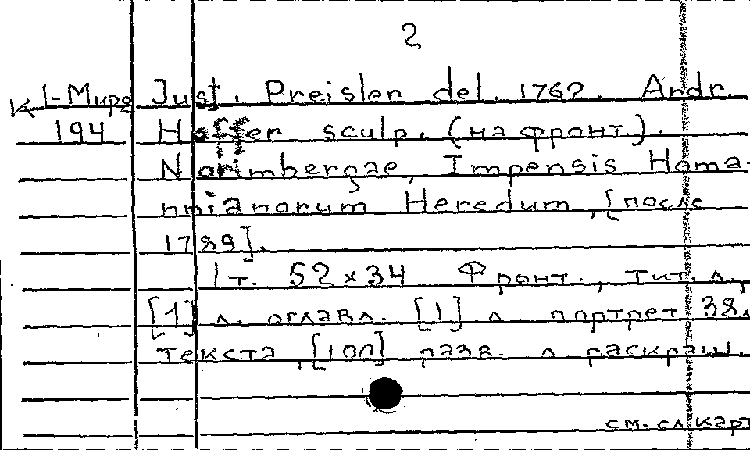 2
К 1-Миро Just. Preisler del. 1762. Andr.
194 Hoffer sculp. (на фронт).
Norimbergae, Impensis Homa-
nnianorum Heredum, [после
1789].
1 т. 52 x 34 Фронт., тит. л.,
[1] л. оглавл. [1] л портрет 38.
текста, [100] разв. л раскраш.
см. сл. карт